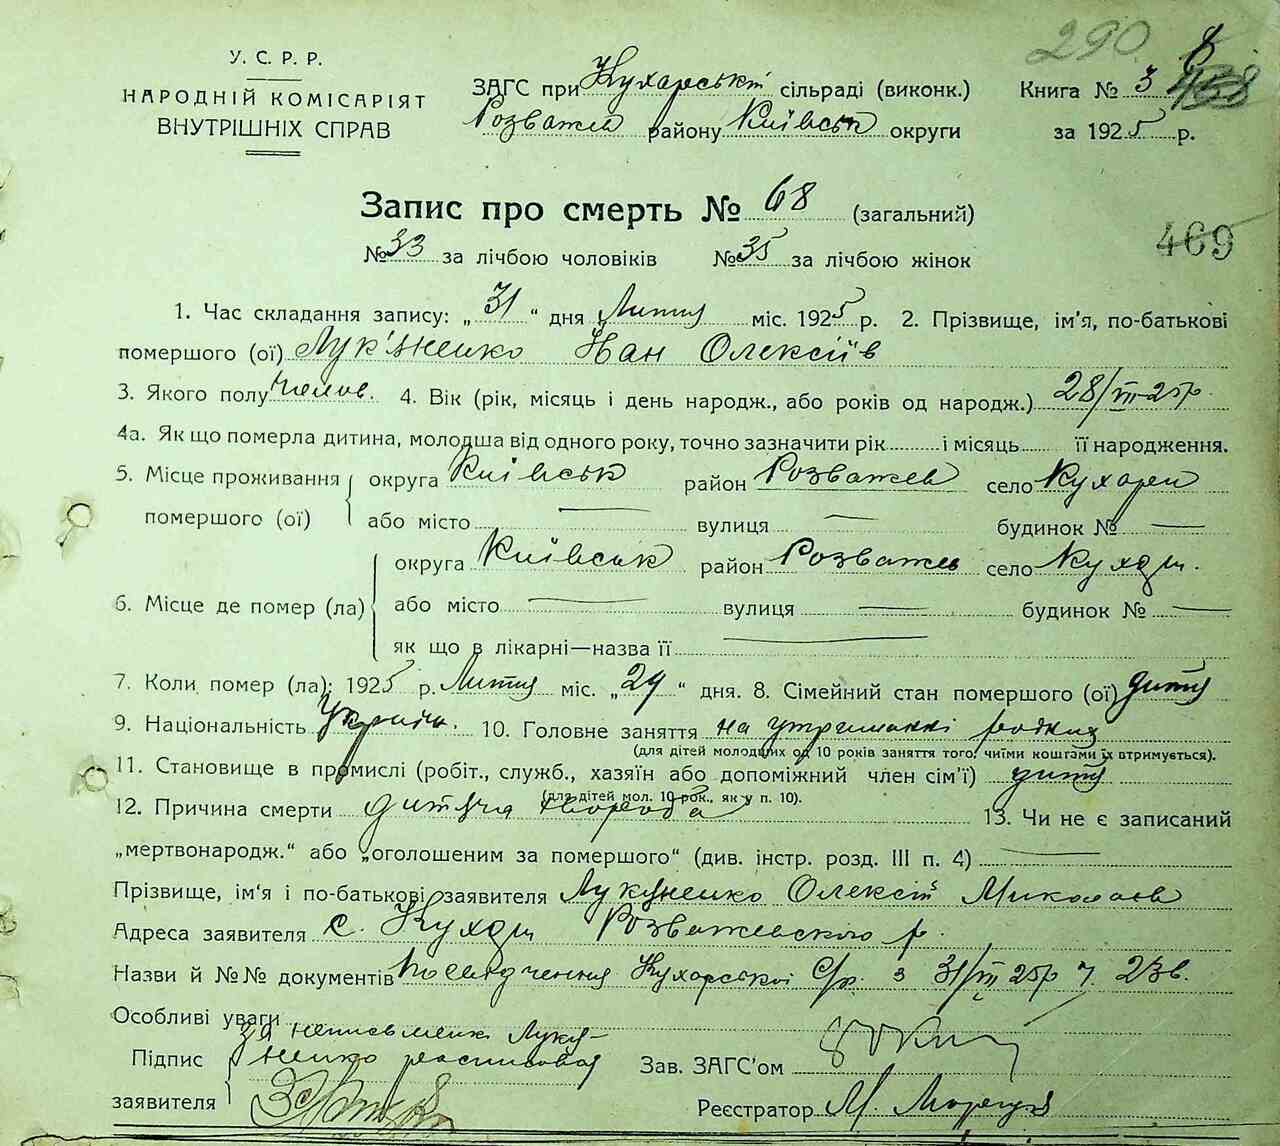 290 8
У. С. Р. Р.
НАРОДНІЙ КОМІСАРІЯТ
ВНУТРІШНІХ СПРАВ
ЗАГС при Кухарські сільраді (виконк.)
Розважев району Київськ округи
Книга № 3
за 1925 р.
Запис про смерть № 68 (загальний)
469
№ 33 за лічбою чоловіків № 35 за лічбою жінок
1. Час складання запису: „ 31 “ дня Липня міс. 1925 р. 2. Прізвище, ім'я, по-батькові
помершого (ої) Лук'яненко Іван Олексіїв
3. Якого полу челов. 4. Вік (рік, місяць і день народж., або років од народж.) 28/III-25р.
4а. Як що померла дитина, молодша від одного року, точно зазначити рік і місяць її народження.
5. Місце проживання помершого (ої) округа Київськ район Розважев село Кухари
або місто — вулиця — будинок № —
6. Місце де помер (ла) округа Київськ район Розважев село Кухари.
або місто — вулиця — будинок № —
як що в лікарні—назва її —
7. Коли помер (ла): 1925 р. Липня міс. „ 29 “ дня. 8. Сімейний стан помершого (ої) дитя
9. Національність Україн. 10. Головне заняття на утриманні
(для дітей молодших од 10 років заняття того, чиїми коштами їх втримується).
11. Становище в промислі (робіт., служб., хазяїн або допоміжний член сім'ї) дитя
(для дітей мол. 10 рок., як у п. 10).
12. Причина смерти дитяча хвороба 13. Чи не є записаний
„мертвонародж.“ або „оголошеним за помершого“ (див. інстр. розд. III п. 4) —
Прізвище, ім'я і по-батькові заявителя Лукяненко Олексій Миколаєв
Адреса заявителя с. Кухари Розважевского р.
Назви й №№ документів Посвідчення Кухарської С/р. з 31/III 25р ч. 23в.
Особливі уваги
Підпис заявителя за неписьменн. Лукя-
ненко росписався
Зав. ЗАГС'ом
Реєстратор М.